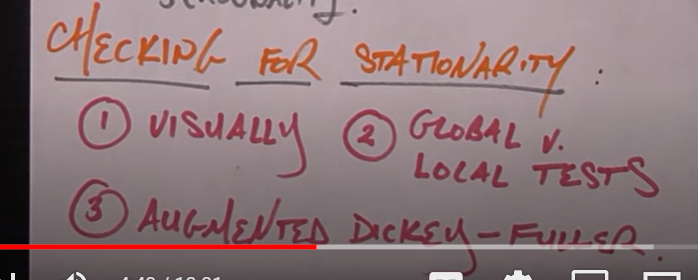 SEASONALITY.
CHECKING FOR STATIONARITY:
① VISUALLY ② GLOBAL V.
LOCAL TESTS
③ AUGMENTED DICKEY-FULLER.